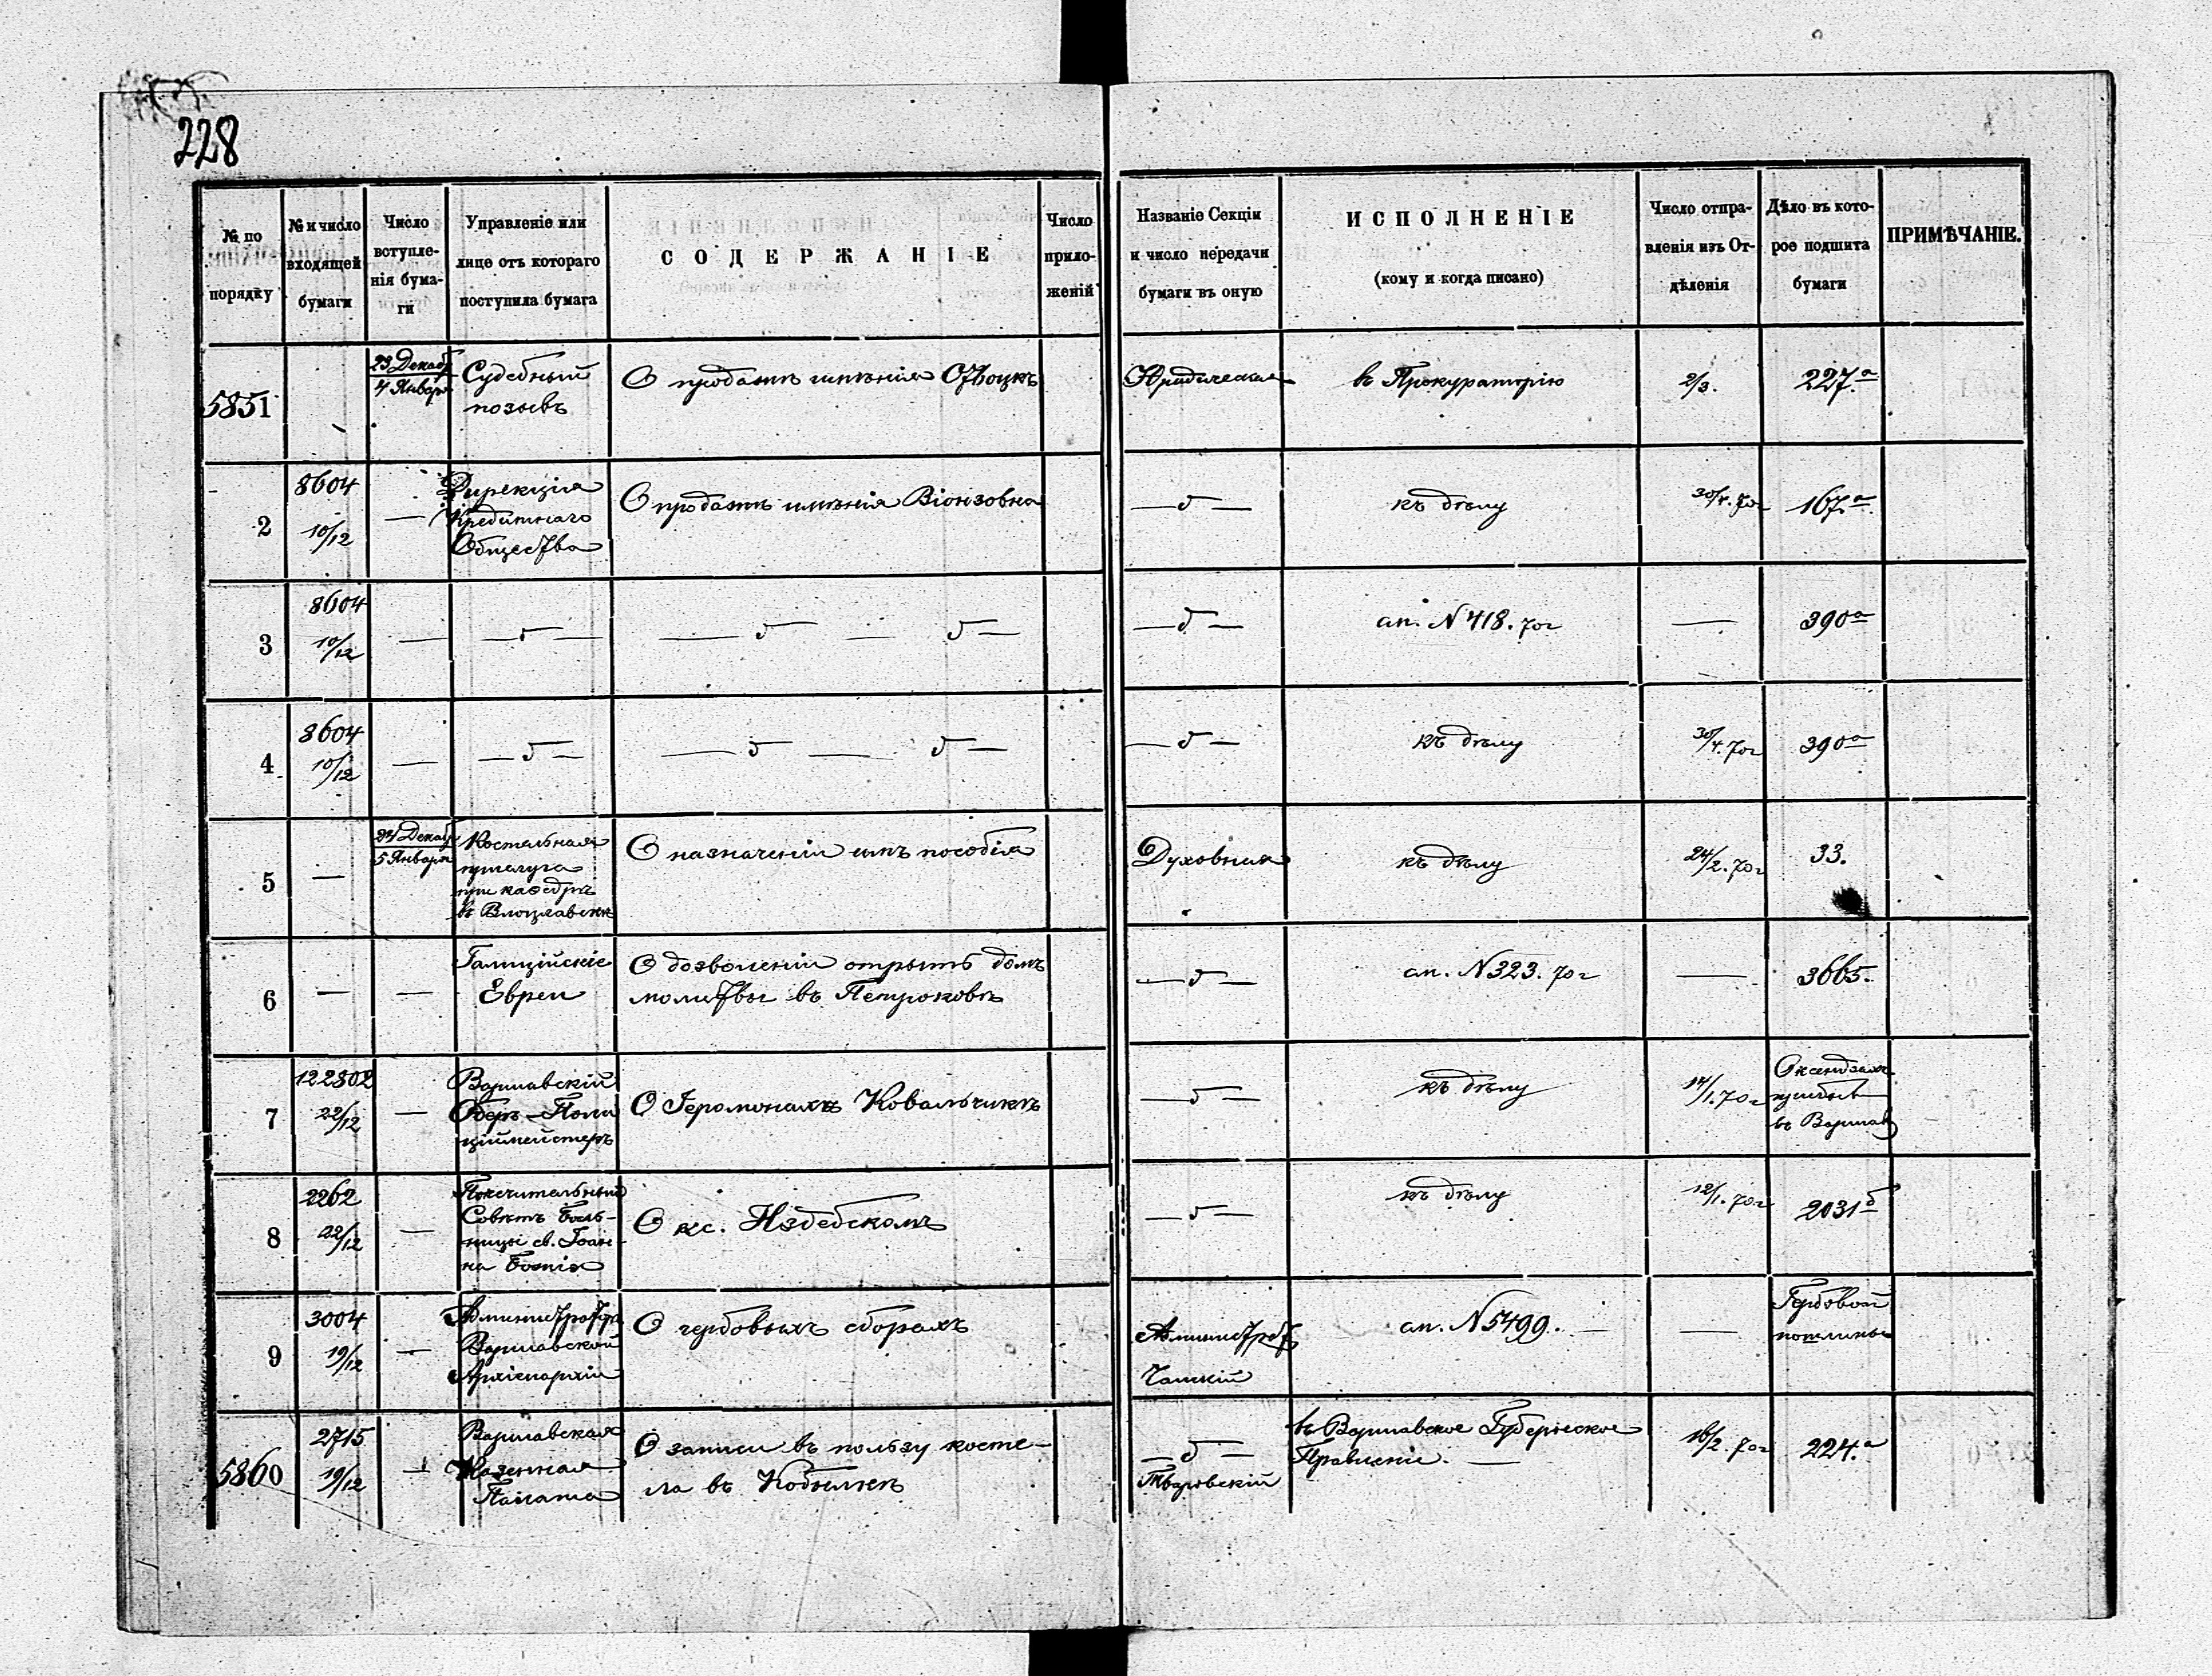 228
№ по порядку | № и число входящей бумаги | Число вступленія бумаги | Управленіе или лице отъ котораго поступила бумага | СОДЕРЖАНІЕ | Число приложеній | Названіе Секціи и число передачи бумаги въ оную | ИСПОЛНЕНІЕ (кому и когда писано) | Число отправленія изъ Отдѣленія | Дѣло въ которое подшита бумаги | ПРИМѢЧАНІЕ.
5851 | 23 Декаб / 4 Январ | Судебный позывъ | О продажѣ имѣнія Отвоцкъ | Юридическая | въ Прокураторію | 2/3. | 227.а
2 | 8604 10/12 | — | Дирекція Кредитнаго Общества | О продажѣ имѣнія Віонзовна | — „ — | къ дѣлу | 30/4. 70г | 167.а
3 | 8604 10/12 | — | — „ — | — „ — „ — | — „ — | ап. N 418. 70г | — | 390а
4 | 8604 10/12 | — | — „ — | — „ — „ — | — „ — | къ дѣлу | 30/4. 70г | 390а
5 | — | 24 Декаб / 5 Январ | Костельная прислуга при каѳедрѣ въ Влоцлавскѣ | О назначеніи имъ пособія | Духовная | къ дѣлу | 24/2. 70г | 33.
6 | — | — | Галиційскіе Евреи | О дозволеніи открыть домъ молитвы въ Петроковѣ | — „ — | ап. N 323. 70г | — | 3665.
7 | 122802 22/12 | — | Варшавскій Оберъ-Полиціймейстеръ | О Іеромонахѣ Ковальчикѣ | — „ — | къ дѣлу | 14/1. 70г | въ Варшав
8 | 2262 22/12 | — | Попечительный Совѣтъ Больницы св. Іоанна Божія | О кс. Издебскомъ | — „ — | къ дѣлу | 12/1. 70г | 2031б
9 | 3004 19/12 | — | Администраторъ Варшавской Архіепархіи | О гербовыхъ сборахъ | Административ | ап. N 5499. — | — | Гербовой пошлины
5860 | 2715 19/12 | — | Варшавская Казенная Палата | О записи въ пользу костела въ Кобылкѣ | — „ — | въ Варшавское Губернское Правленіе. — | 16/2. 70г | 224.а